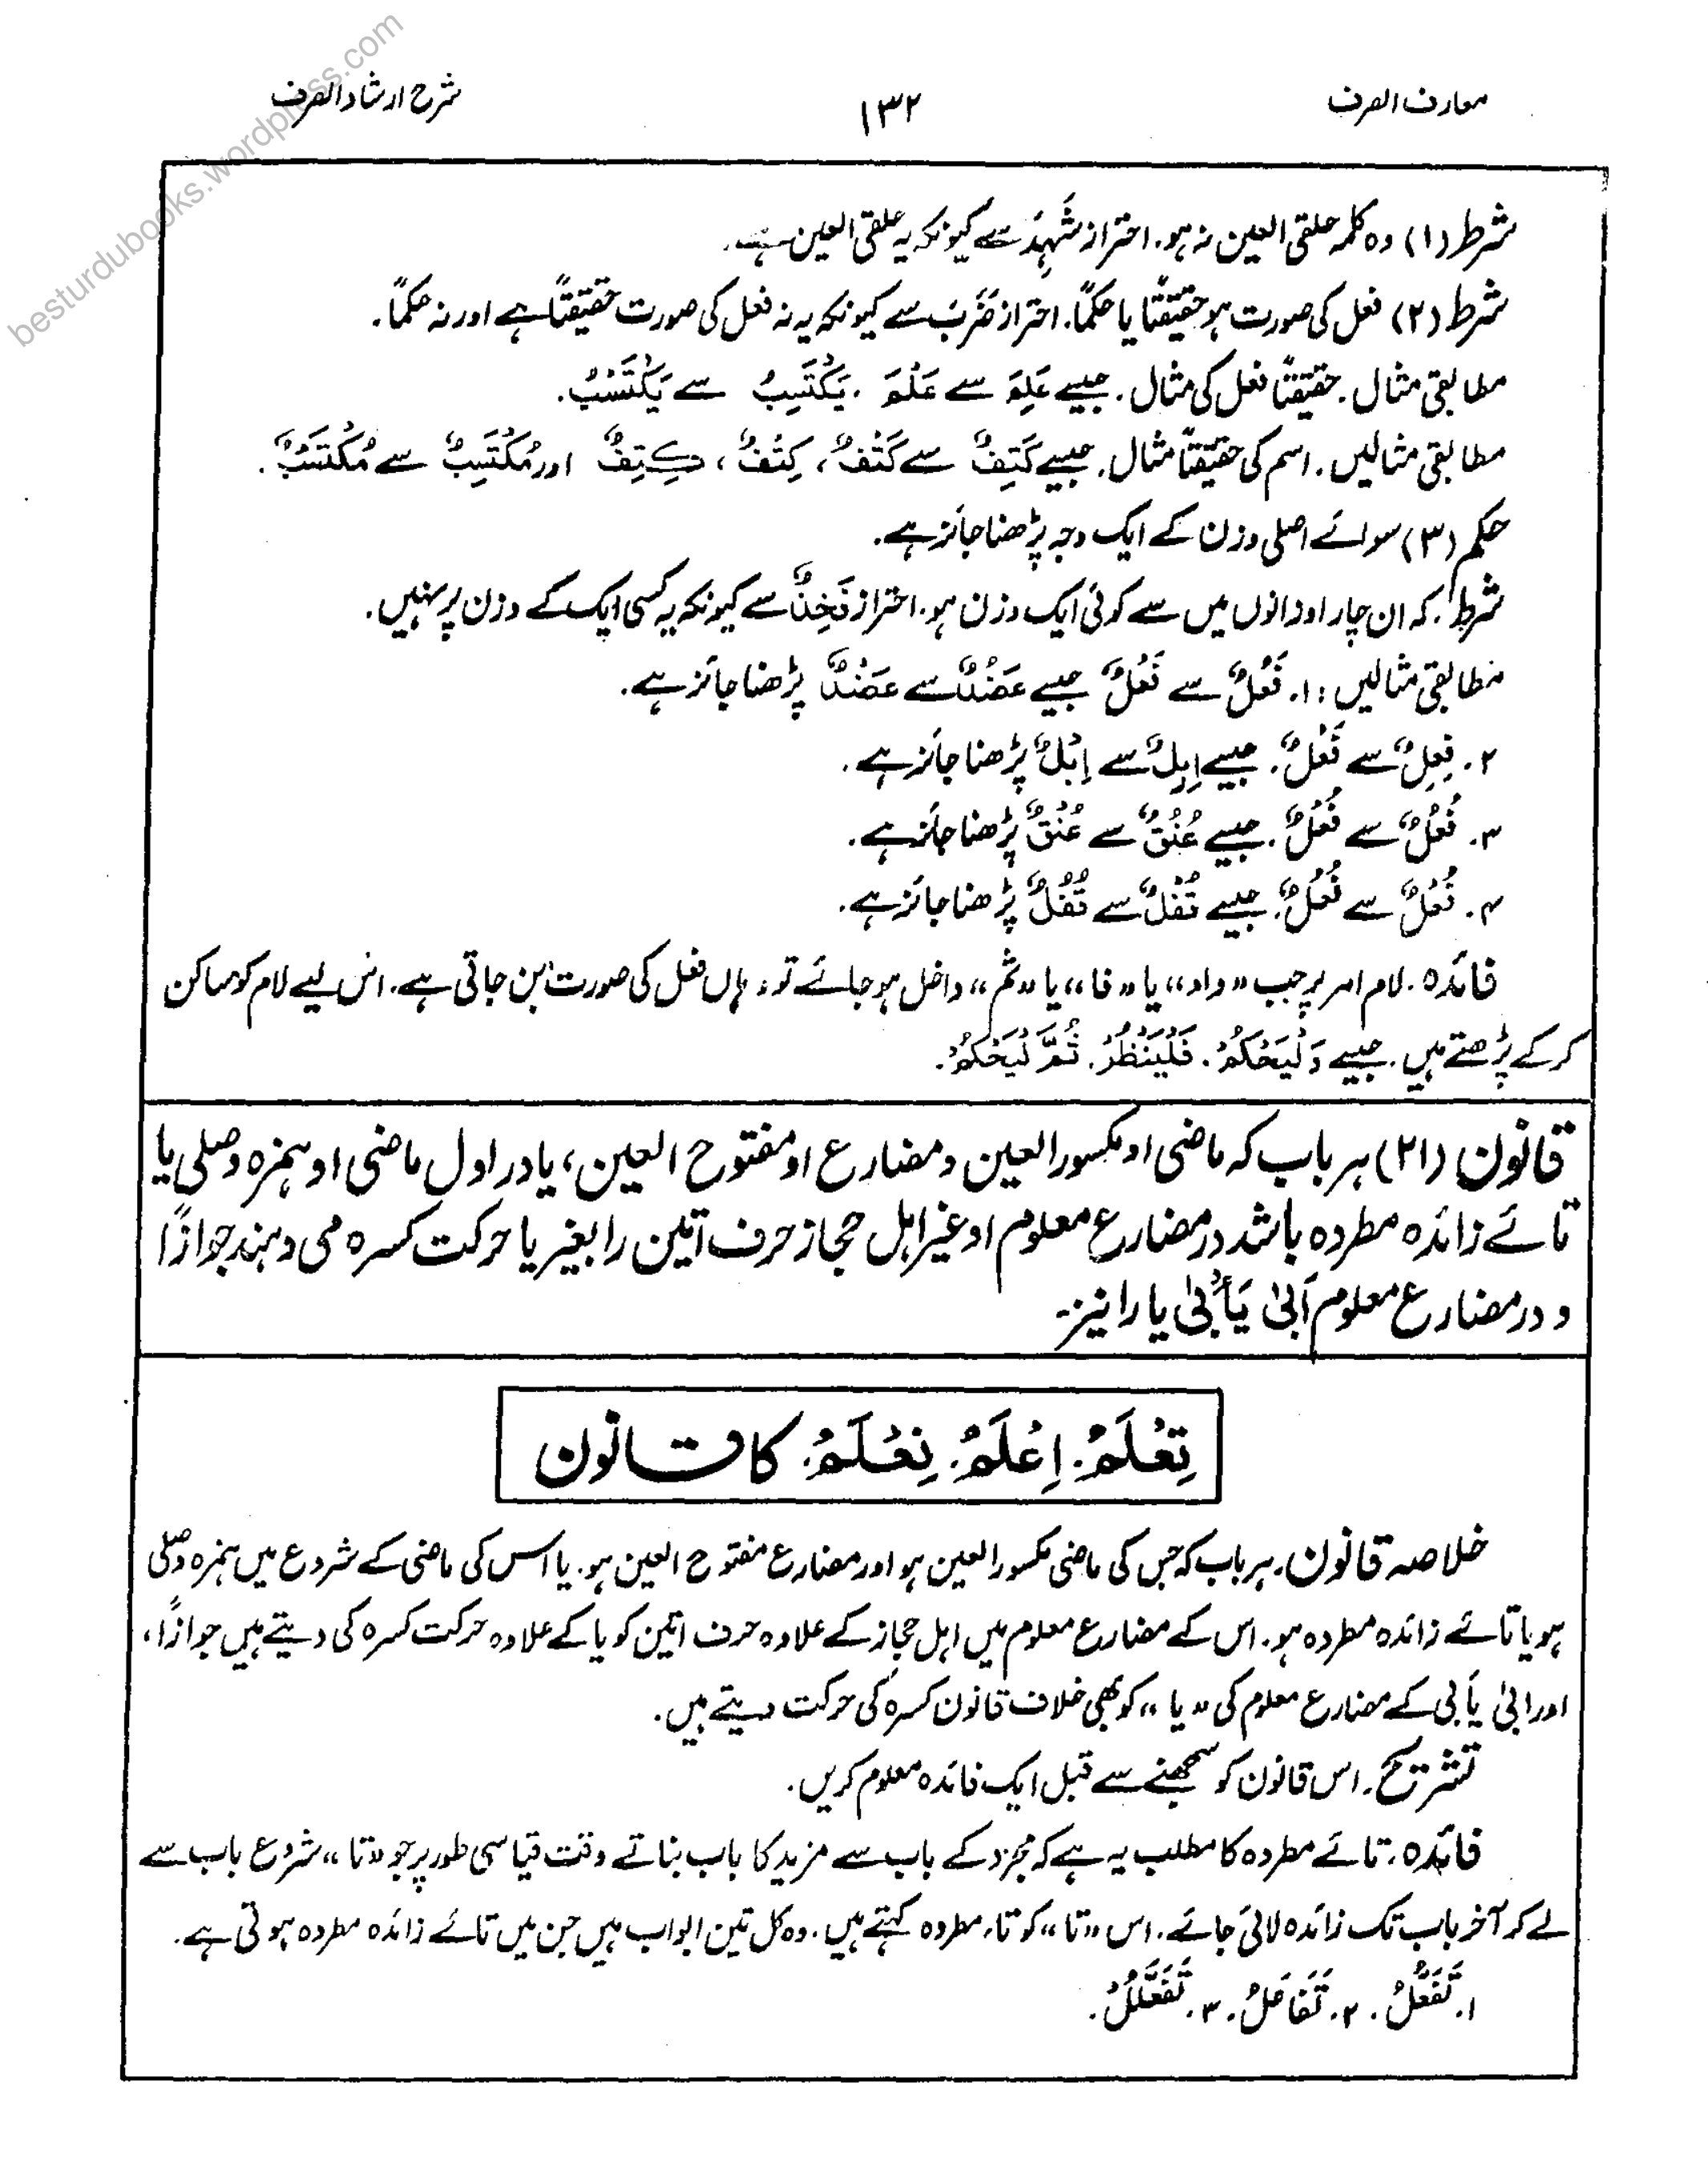 معارف الصرف
۱۳۲
شرح ارشاد الصرف
besturdubooks.wordpress.com
شرط (۱) وہ کلمہ حلقی العین نہ ہو. احتراز شَہِدَ سے کیونکہ یہ حلقی العین ہے.
شرط (۲) فعل کی صورت ہو حقیقتًا یا حکمًا. احتراز ضَرَبَ سے کیونکہ یہ نہ فعل کی صورت حقیقتًا ہے اور نہ حکمًا.
مطابقی مثال. حقیقتًا فعل کی مثال. جیسے عَلِمَ سے عَلْمَ. یَکْتَسِبُ سے یَکْتَسْبُ.
مطابقی مثالیں. اسم کی حقیقتًا مثال. جیسے کَتِفٌ سے کَتْفٌ، کِتْفٌ، کِتِفٌ اور مُکْتَسِبٌ سے مُکْتَسْبٌ.
حکم (۳) سوائے اصلی وزن کے ایک وجہ پڑھنا جائز ہے.
شرط. کہ ان چار اوزانوں میں سے کوئی ایک وزن ہو. احتراز فَخِذٌ سے کیونکہ یہ کسی ایک کے وزن پر نہیں.
مطابقی مثالیں: ۱. فَعُلٌ سے فَعْلٌ جیسے عَضُدٌ سے عَضْدٌ پڑھنا جائز ہے.
۲. فِعِلٌ سے فِعْلٌ. جیسے اِبِلٌ سے اِبْلٌ پڑھنا جائز ہے.
۳. فُعُلٌ سے فُعْلٌ. جیسے عُنُقٌ سے عُنْقٌ پڑھنا جائز ہے.
۴. فُعْلٌ سے فُعُلٌ. جیسے قُفْلٌ سے قُفُلٌ پڑھنا جائز ہے.
فائدہ. لام امر پر جب «واو» یا «فا» یا «ثم» داخل ہو جائے تو وہاں فعل کی صورت بن جاتی ہے. اس لیے لام کو ساکن
کر کے پڑھتے ہیں. جیسے وَلْیَحْکُمْ. فَلْیَنْظُرْ. ثُمَّ لْیَحْکُمْ.
قانون (۲۱) ہر باب کہ ماضی او مکسور العین و مضارع او مفتوح العین، یا در اول ماضی او ہمزہ وصلی یا
تائے زائدہ مطردہ باشد در مضارع معلوم او غیر اہل حجاز حرف اتین را بغیر یا حرکت کسرہ می دہند جوازًا
و در مضارع معلوم اَبیٰ یَأْبیٰ یا را نیز۔
تِعْلَمُ. اِعْلَمُ. نِعْلَمُ. کا قانون
خلاصہ قانون. ہر باب کہ جس کی ماضی مکسور العین ہو اور مضارع مفتوح العین ہو. یا اس کی ماضی کے شروع میں ہمزہ وصلی
ہو یا تائے زائدہ مطردہ ہو. اس کے مضارع معلوم میں اہل حجاز کے علاوہ حرف اتین کو یا کے علاوہ حرکت کسرہ کی دیتے ہیں جوازًا،
اور ابیٰ یَأبیٰ کے مضارع معلوم کی «یا» کو بھی خلاف قانون کسرہ کی حرکت دیتے ہیں.
تشریح. اس قانون کو سمجھنے سے قبل ایک فائدہ معلوم کریں.
فائدہ. تائے مطردہ کا مطلب یہ ہے کہ مجرد کے باب سے مزید کا باب بناتے وقت قیاسی طور پر جو «تا» شروع باب سے
لے کر آخر باب تک زائدہ لائی جائے. اس «تا» کو تاء مطردہ کہتے ہیں. وہ کل تین ابواب ہیں جن میں تائے زائدہ مطردہ ہوتی ہے.
۱. تَفَعُّلُ. ۲. تَفَاعُلُ. ۳. تَفَعْلُلُ.